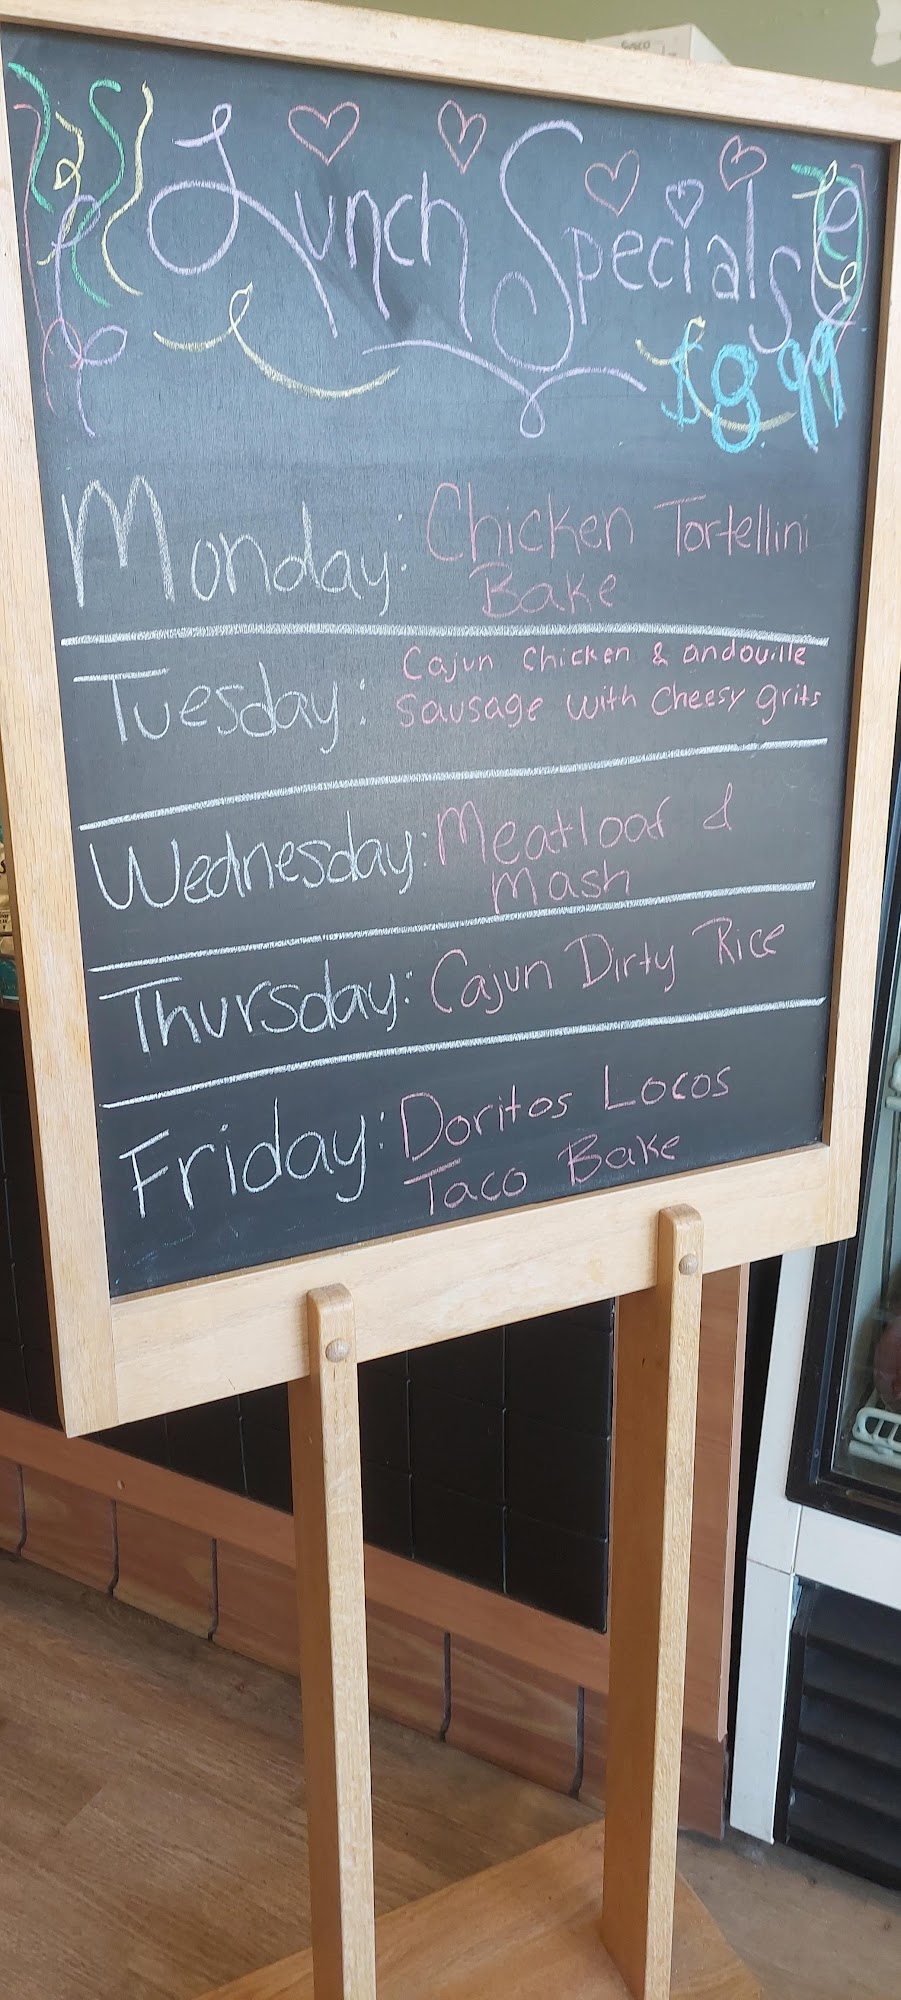 Lunch Specials
$8.99
Monday: Chicken Tortellini
Bake
Tuesday: Cajun Chicken & andouille
sausage with cheesy grits
Wednesday: Meatloaf &
Mash
Thursday: Cajun Dirty Rice
Friday: Doritos Locos
Taco Bake